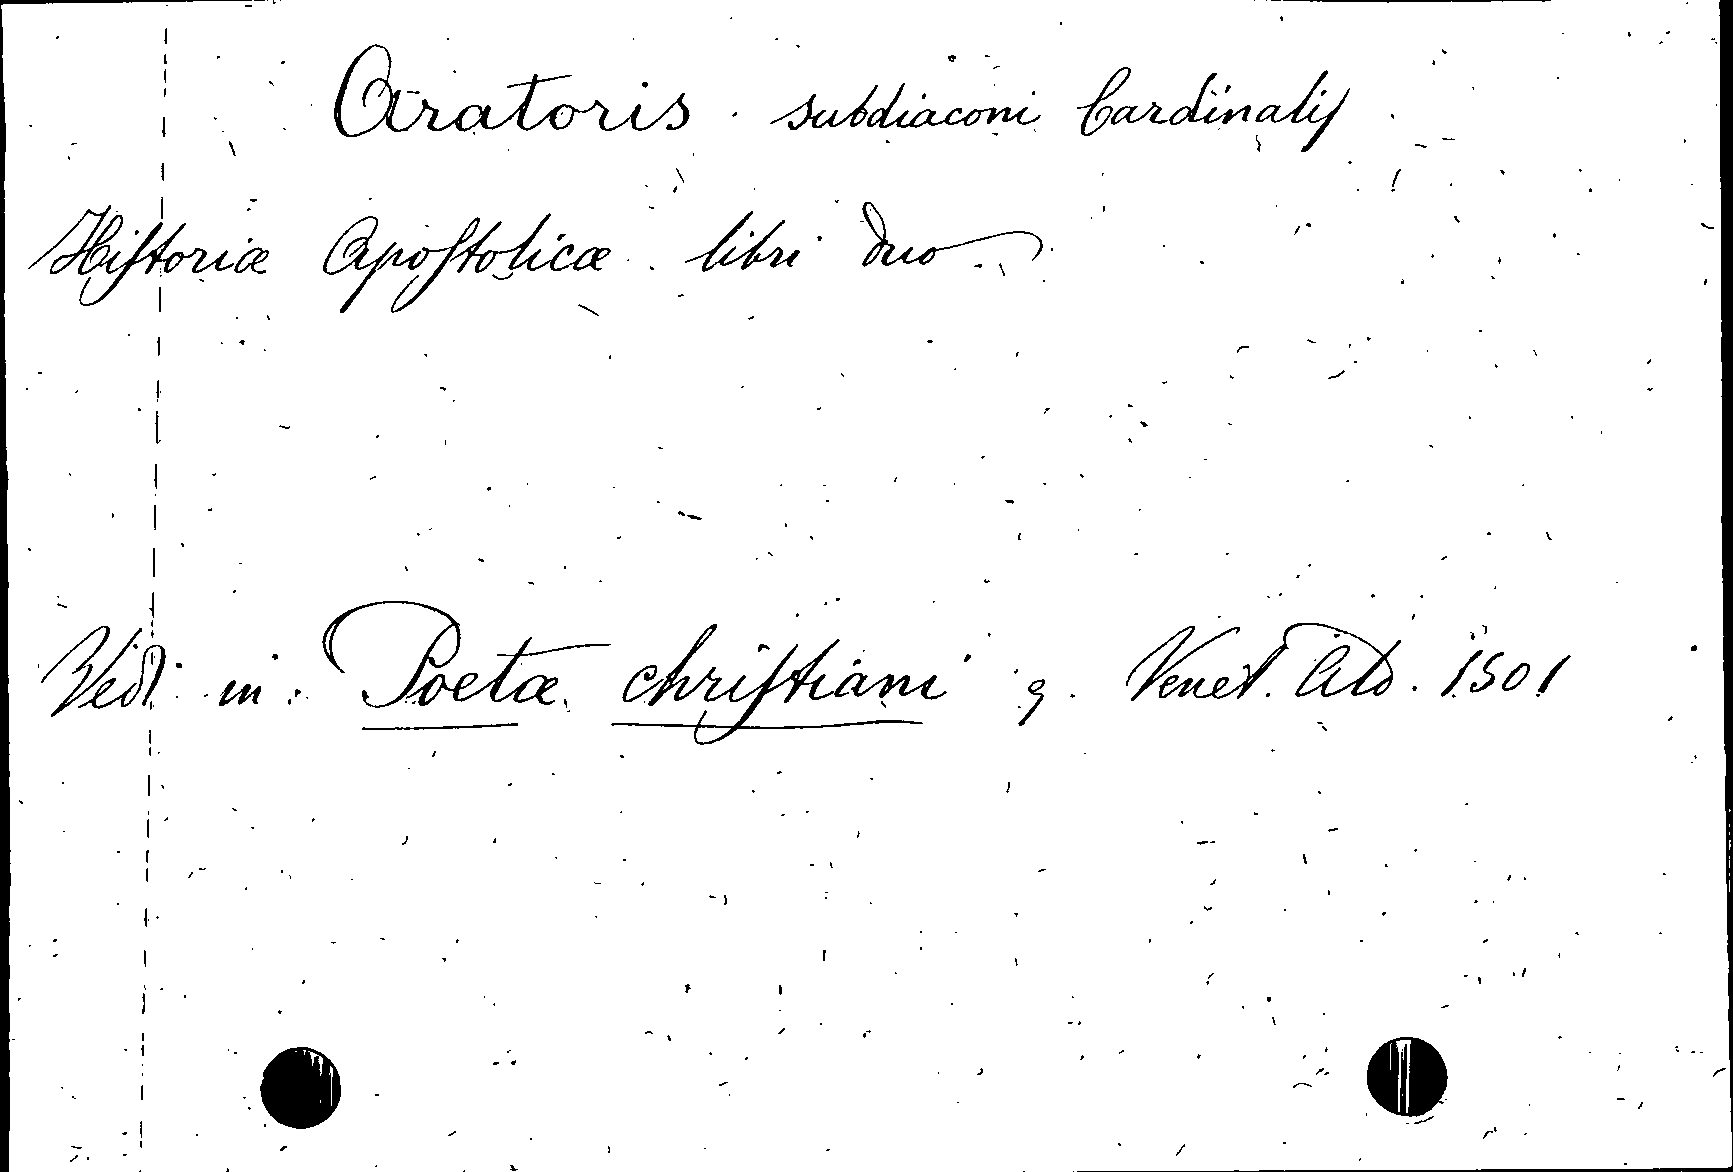 Aratoris subdiaconi Cardinalis
Historiæ Apostolicæ libri duo
Vedi in: Poetæ christiani 9. Venet. Ald. 1501